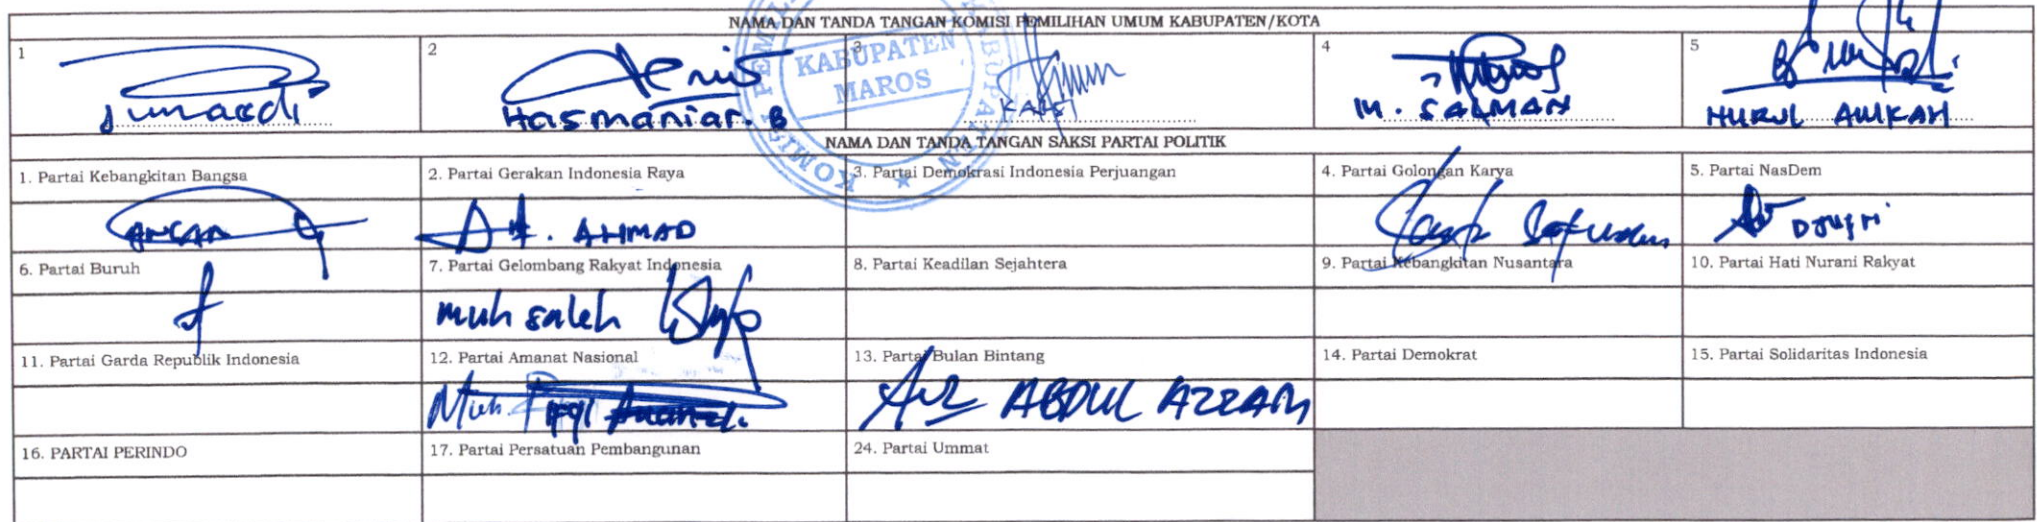 NAMA DAN TANDA TANGAN KOMISI PEMILIHAN UMUM KABUPATEN/KOTA
1 2 3 4 5
Junaedi Hasmaniar. B M. SALMAN NURUL AMKAH
KABUPATEN
MAROS
NAMA DAN TANDA TANGAN SAKSI PARTAI POLITIK
1. Partai Kebangkitan Bangsa 2. Partai Gerakan Indonesia Raya 3. Partai Demokrasi Indonesia Perjuangan 4. Partai Golongan Karya 5. Partai NasDem
AHMAD
6. Partai Buruh 7. Partai Gelombang Rakyat Indonesia 8. Partai Keadilan Sejahtera 9. Partai Kebangkitan Nusantara 10. Partai Hati Nurani Rakyat
muh saleh
11. Partai Garda Republik Indonesia 12. Partai Amanat Nasional 13. Partai Bulan Bintang 14. Partai Demokrat 15. Partai Solidaritas Indonesia
Muh. ABDUL AZZAM
16. PARTAI PERINDO 17. Partai Persatuan Pembangunan 24. Partai Ummat